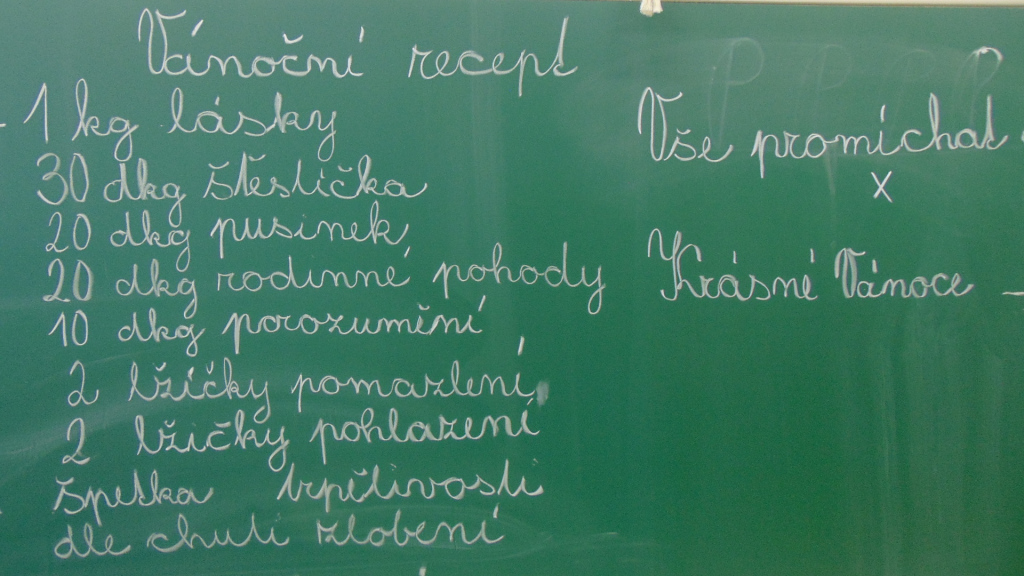 Vánoční recept
1 kg lásky
30 dkg štěstíčka
20 dkg pusinek
20 dkg rodinné pohody
10 dkg porozumění
2 lžíčky pomazlení
2 lžičky pohlazení
špetka trpělivosti
dle chuti zlobení
Vše promíchat
x
Krásné Vánoce